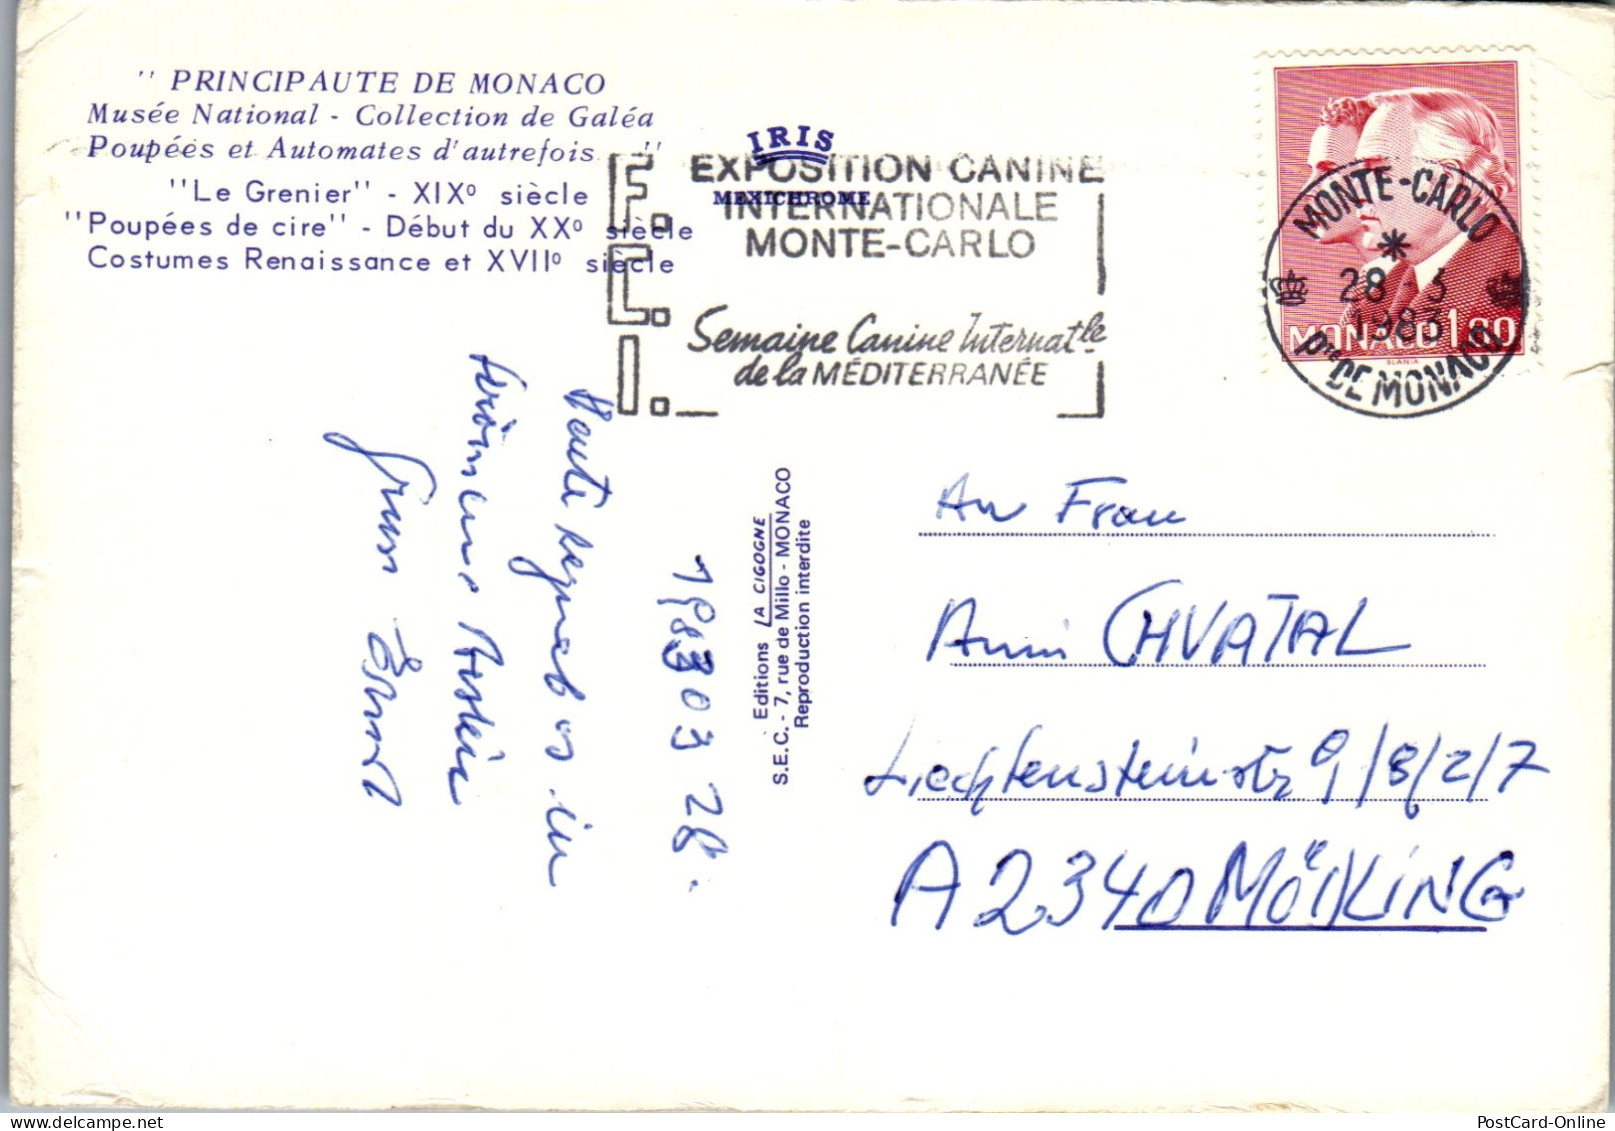 " PRINCIPAUTE DE MONACO
Musée National - Collection de Galéa
Poupées et Automates d'autrefois "
"Le Grenier" - XIXº siècle
"Poupées de cire" - Début du XXº siècle
Costumes Renaissance et XVIIº siècle
IRIS
MEXICHROME
F.C.I.
EXPOSITION CANINE
INTERNATIONALE
MONTE-CARLO
Semaine Canine Internatle
de la MÉDITERRANÉE
MONTE-CARLO
28-3
1983
Pté DE MONACO
MONACO 1,80
SLANIA
1983 03 28.
Heute in
Gruss
Editions LA CIGOGNE
S.E.C. - 7, rue de Millo - MONACO
Reproduction interdite
An Frau
Anni CHVATAL
Liechtensteinstr 9/8/2/7
A 2340 MÖDLING
PostCard-Online